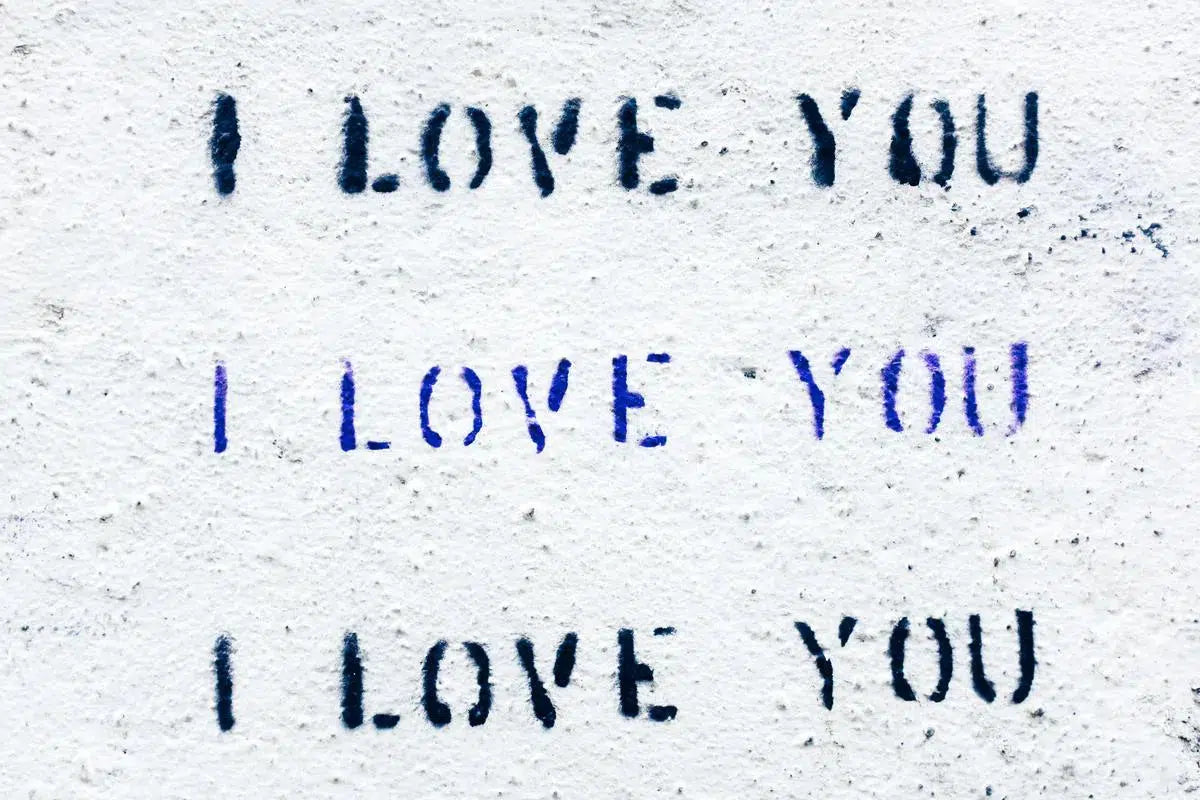 I LOVE YOU
I LOVE YOU
I LOVE YOU